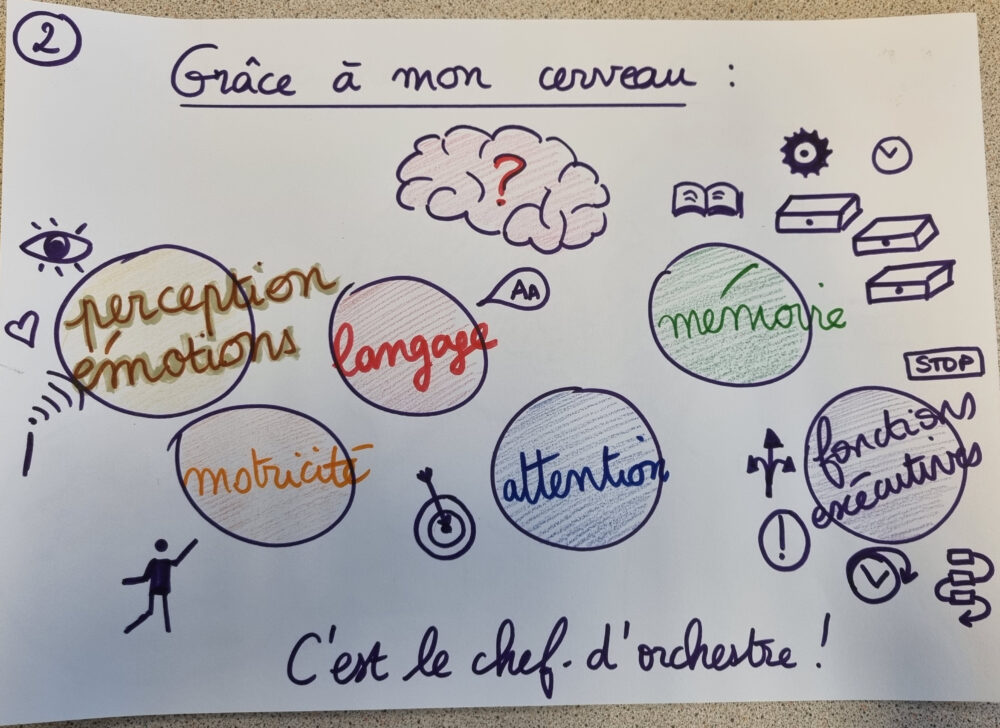 2
Grâce à mon cerveau :
?
perception
émotions
langage
AA
mémoire
STOP
motricité
attention
fonctions
exécutives
!
C'est le chef-d'orchestre !